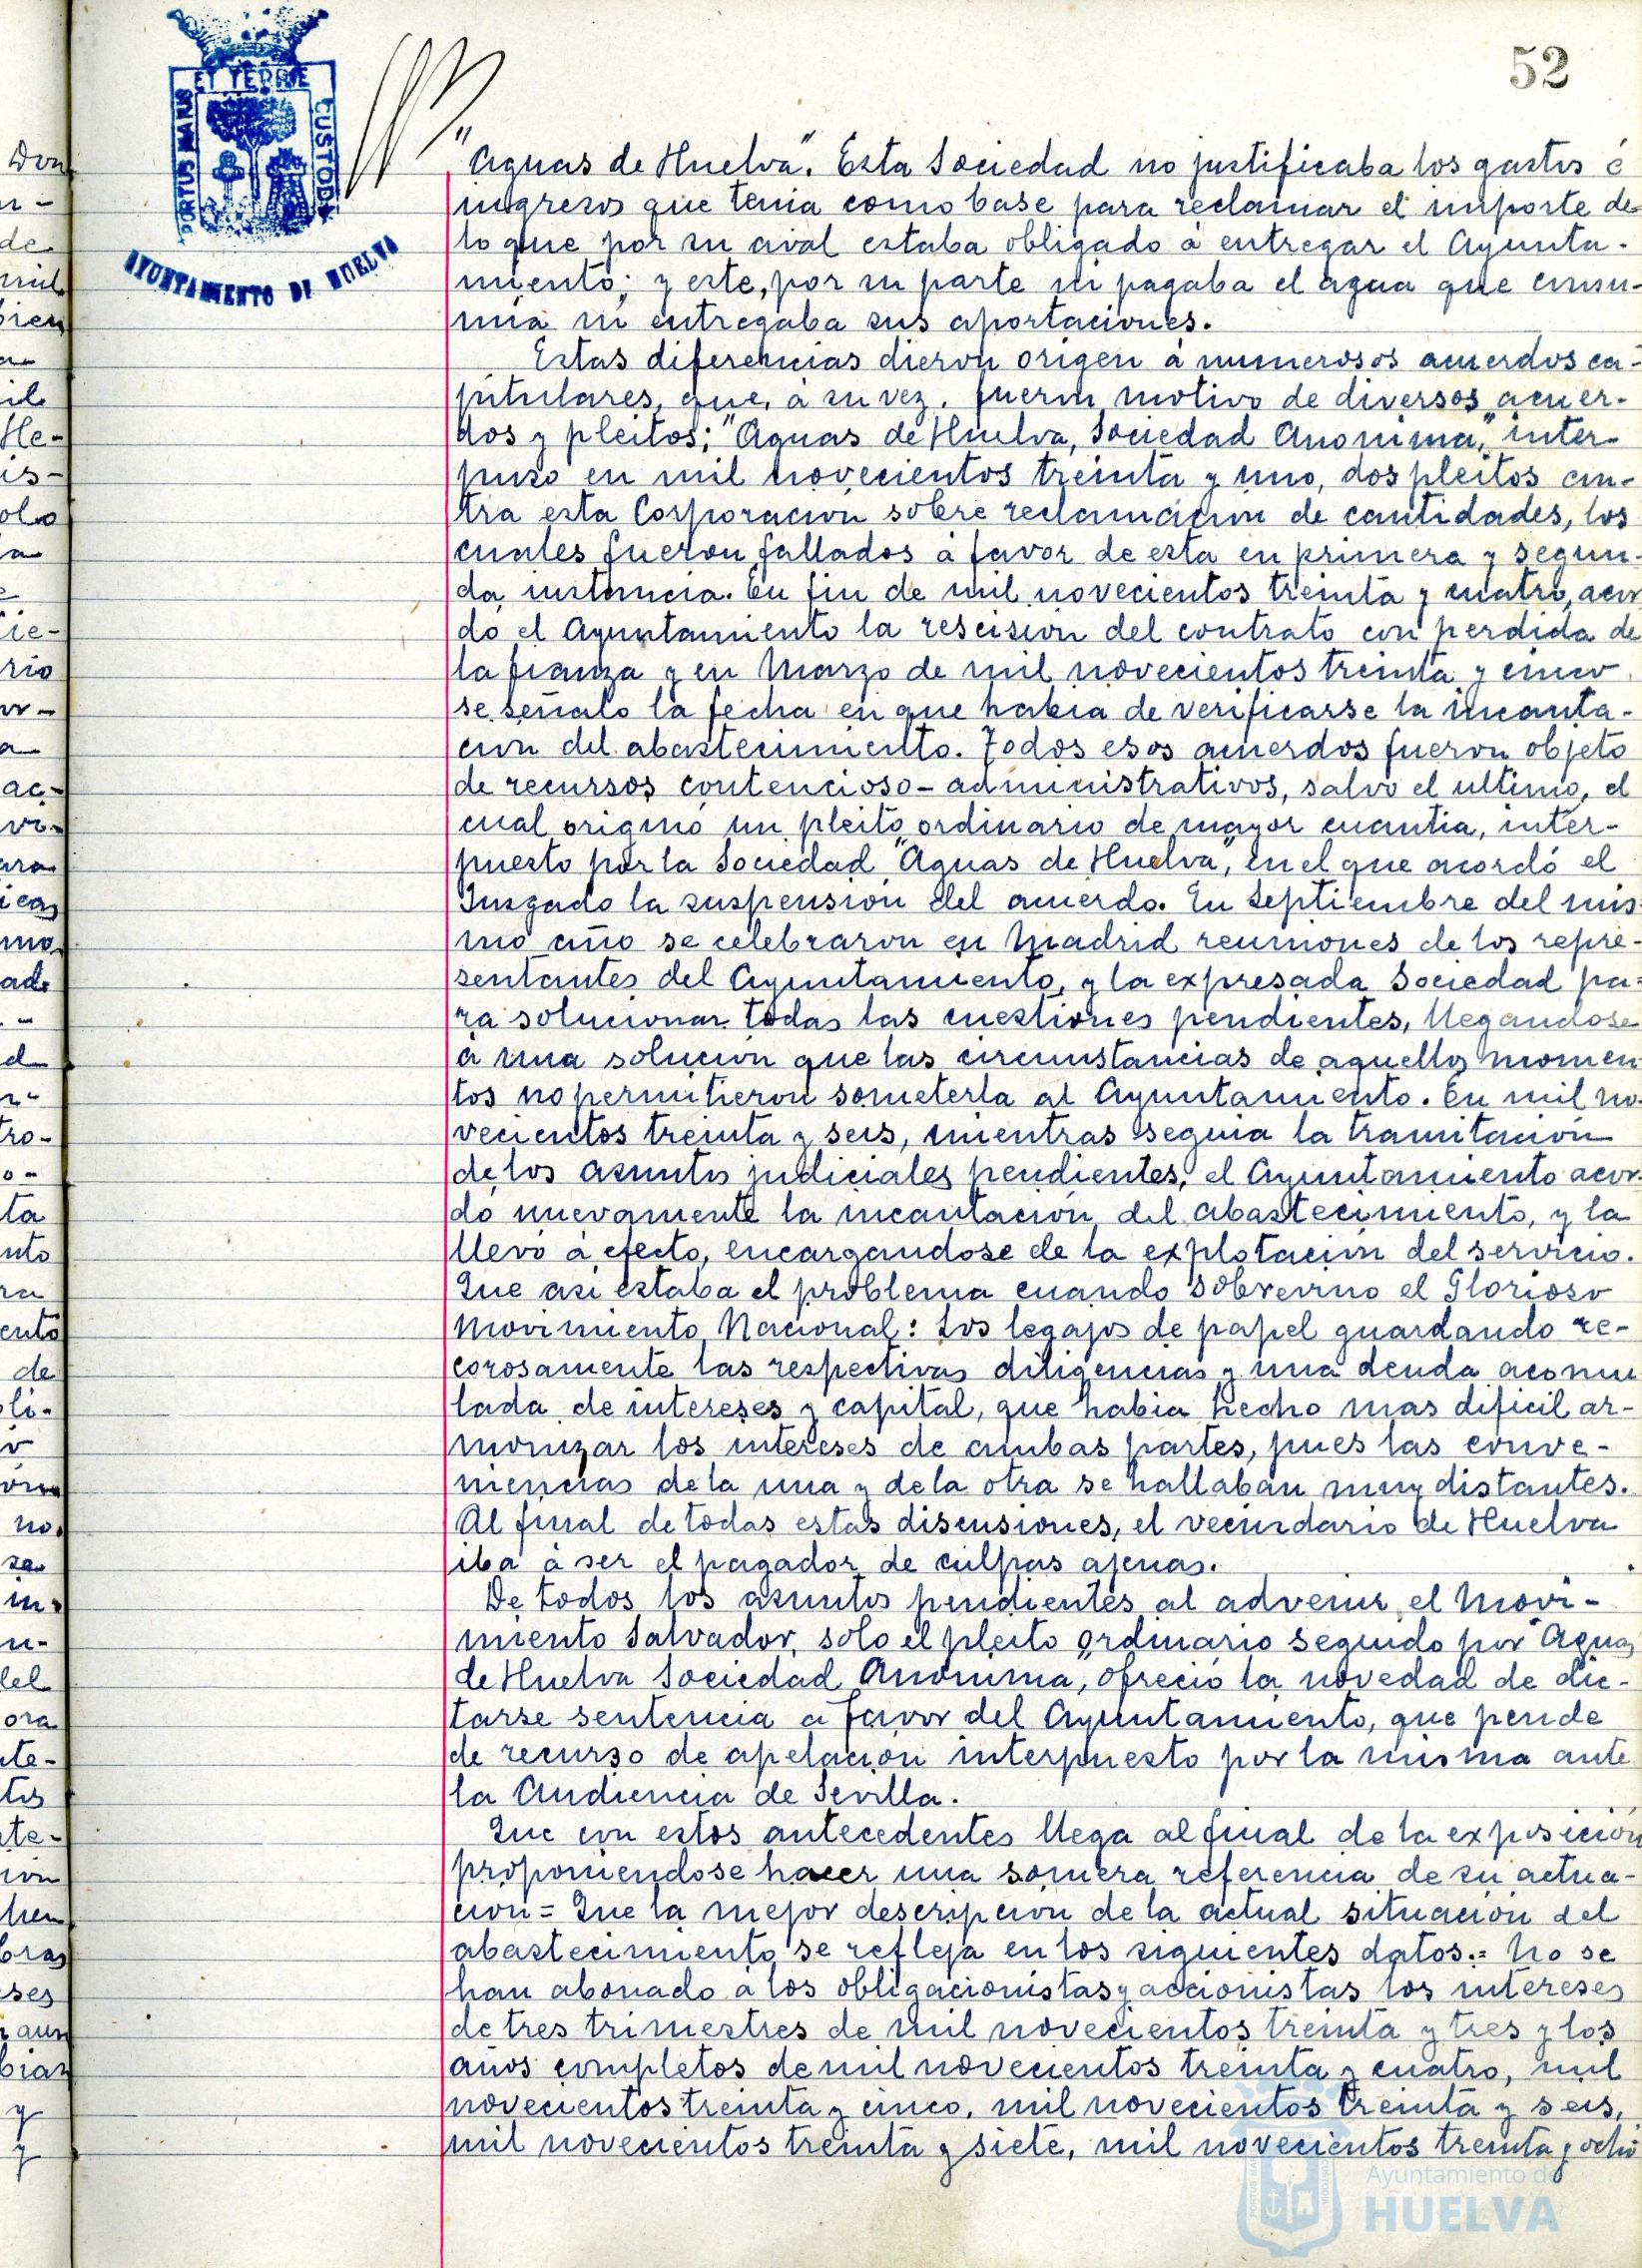 52
PORTUS MARIS
ET TERRE
CUSTODIA
AYUNTAMIENTO DE HUELVA
"Aguas de Huelva". Esta Sociedad no justificaba los gastos é
ingresos que tenia como base para reclamar el importe de
lo que por su aval estaba obligado á entregar el Ayunta-
miento; y este, por su parte ni pagaba el agua que consu-
mia ni entregaba sus aportaciones.
Estas diferencias dieron origen á numerosos acuerdos ca-
pitulares, que, á su vez, fueron motivo de diversos acuer-
dos y pleitos; "Aguas de Huelva, Sociedad Anonima," inter-
puso en mil novecientos treinta y uno, dos pleitos con-
tra esta Corporacion sobre reclamacion de cantidades, los
cuales fueron fallados á favor de esta en primera y segun-
da instancia. En fin de mil novecientos treinta y cuatro, acor
do el Ayuntamiento la rescision del contrato con perdida de
la fianza y en Marzo de mil novecientos treinta y cinco
se señalo la fecha en que habia de verificarse la incauta-
cion del abastecimiento. Todos esos acuerdos fueron objeto
de recursos contencioso-administrativos, salvo el ultimo, el
cual origino un pleito ordinario de mayor cuantia, inter-
puesto por la Sociedad "Aguas de Huelva", en el que acordó el
Juzgado la suspension del acuerdo. En Septiembre del mis-
mo año se celebraron en Madrid reuniones de los repre-
sentantes del Ayuntamiento, y la expresada Sociedad pa-
ra solucionar todas las cuestiones pendientes, llegandose
á una solucion que las circunstancias de aquellos momen
tos no permitieron someterla al Ayuntamiento. En mil no-
vecientos treinta y seis, mientras seguia la tramitacion
de los asuntos judiciales pendientes, el Ayuntamiento acor-
do nuevamente la incautacion del abastecimiento, y la
llevo á efecto, encargandose de la explotacion del servicio.
Que asi estaba el problema cuando sobrevino el Glorioso
Movimiento Nacional: Los legajos de papel guardando re-
corosamente las respectivas diligencias y una deuda acomu
lada de intereses y capital, que habia hecho mas dificil ar-
monizar los intereses de ambas partes, pues las conve-
niencias de la una y de la otra se hallaban muy distantes.
Al final de todas estas discusiones, el vecindario de Huelva
iba á ser el pagador de culpas ajenas.
De todos los asuntos pendientes al advenir el Movi-
miento Salvador, solo el pleito ordinario seguido por "Aguas
de Huelva Sociedad Anonima", ofrecio la novedad de dic-
tarse sentencia a favor del Ayuntamiento, que pende
de recurso de apelacion interpuesto por la misma ante
la Audiencia de Sevilla.
Que con estos antecedentes llega al final de la exposicion
proponiendose hacer una somera referencia de su actua-
cion = Que la mejor descripcion de la actual situacion del
abastecimiento se refleja en los siguientes datos.= No se
han abonado a los obligacionistas y accionistas los intereses
de tres trimestres de mil novecientos treinta y tres y los
años completos de mil novecientos treinta y cuatro, mil
novecientos treinta y cinco, mil novecientos treinta y seis,
mil novecientos treinta y siete, mil novecientos treinta y ocho
Ayuntamiento de
HUELVA